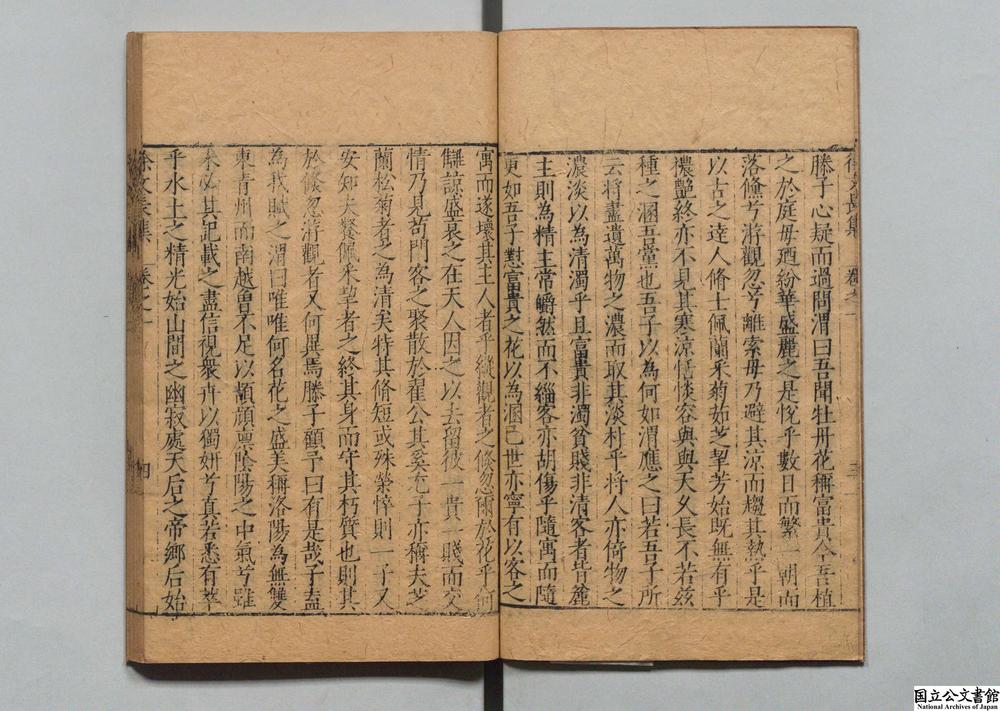 滕子心疑而過問渭曰吾聞牡丹花稱富貴今吾植
之於庭毋廼紛華盛麗之是悅乎數日而繁一朝而
落倏兮游觀忽兮離索毋乃避其涼而趨其熱乎是
以古之達人修士佩蘭采菊茹芝挈芳始既無有乎
穠艷終亦不見其寒涼恬惔容與與天久長不若茲
種之溷吾黨也吾子以為何如渭應之曰若吾子所
云將盡遺萬物之濃而取其淡朴乎將人亦倚物之
濃淡以為清濁乎且富貴非濁貧賤非清客者皆麄
主則為精主常皭然而不緇客亦胡傷乎隨寓而隨
更如吾子懟富貴之花以為溷己世亦寧有以客之
徐文長集 卷之一
寓而遂壞其主人者乎縱觀者之倏忽爾於花乎何
讎諒盛衰之在天人因之以去留彼一貴一賤而交
情乃見苟門客之聚散於翟公其奚尤子亦稱夫芝
蘭松菊者之為清矣特其脩短或殊榮悴則一子又
安知夫餐佩采挈者之終其身而守其朽質也則其
於倏忽游觀者又何異焉滕子顧予曰有是哉子盍
為我賦之渭曰唯唯何名花之盛美稱洛陽為無雙
東青州而南越曾不足以頡頏稟陰陽之中氣兮雖
其記載之盡信視衆卉以獨妍兮真若悉有萃
乎水土之精光始山間之幽寂處天后之帝鄉后始
徐文長集 卷之一 四
国立公文書館
National Archives of Japan